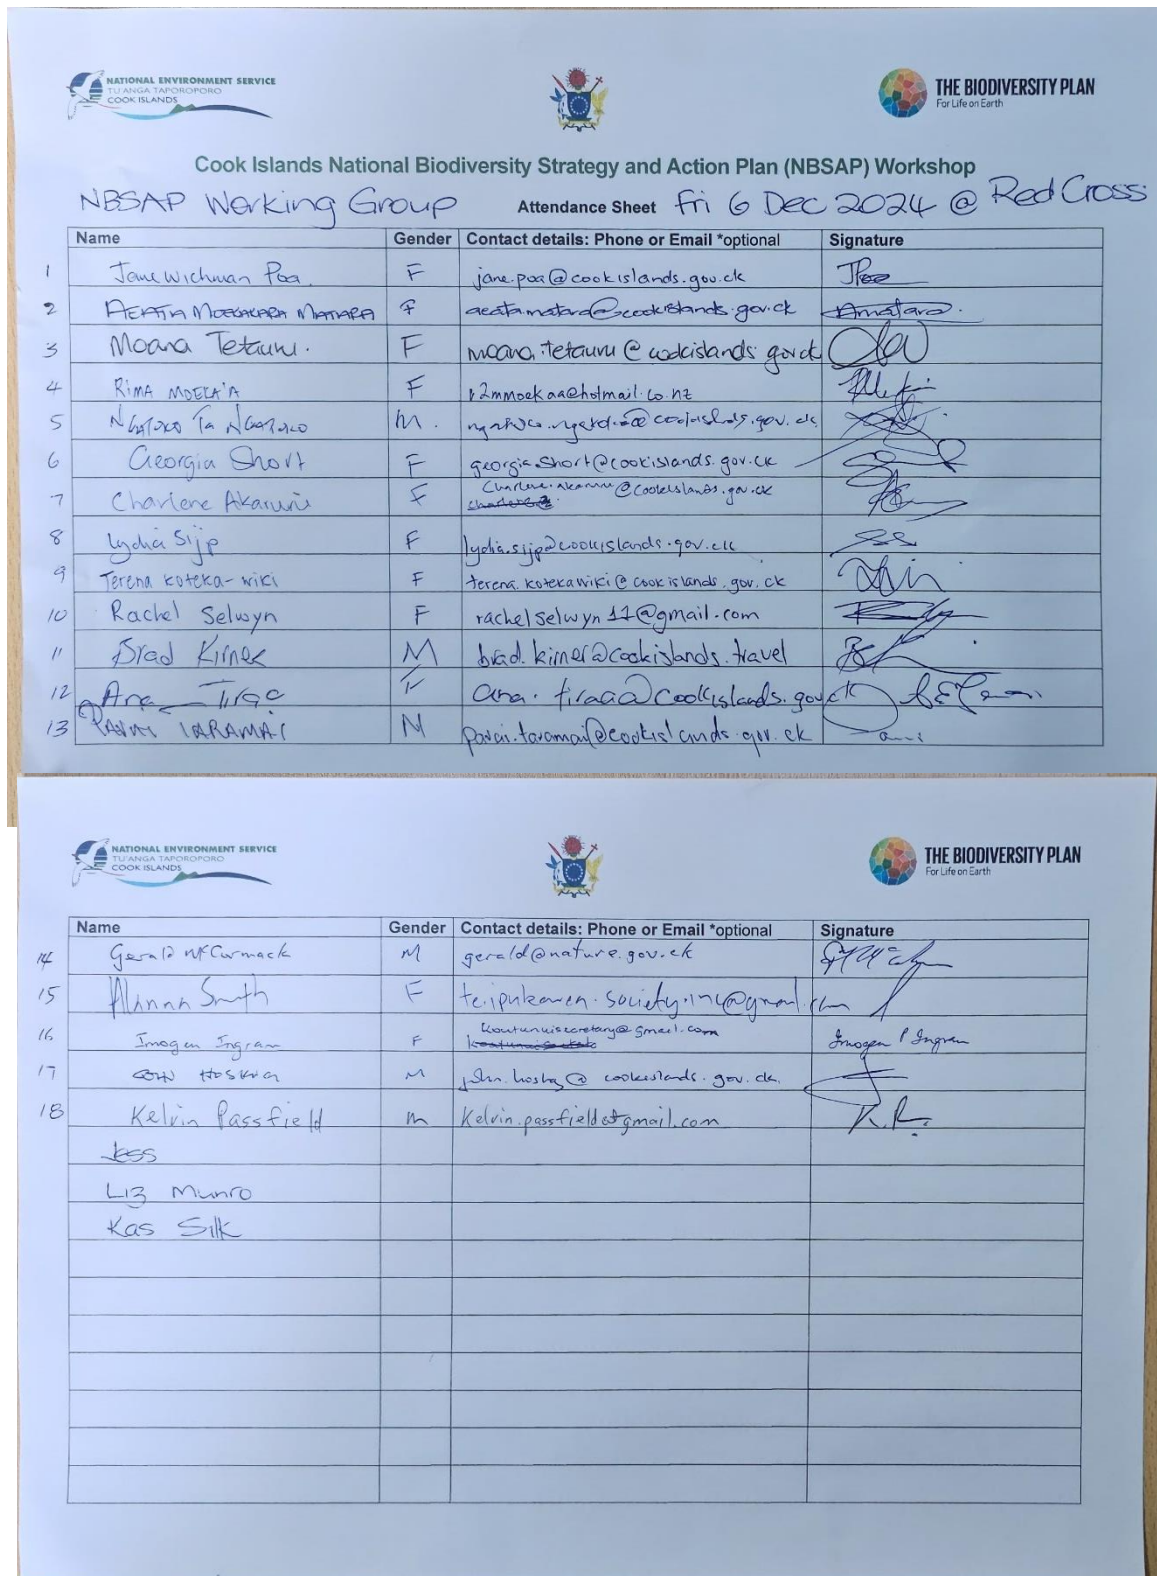 NATIONAL ENVIRONMENT SERVICE
TU'ANGA TAPOROPORO
COOK ISLANDS
THE BIODIVERSITY PLAN
For Life on Earth
Cook Islands National Biodiversity Strategy and Action Plan (NBSAP) Workshop
NBSAP Working Group Attendance Sheet Fri 6 Dec 2024 @ Red Cross
Name Gender Contact details: Phone or Email *optional Signature
1 Jane Wichman Poa F jane.poa@cookislands.gov.ck JPoa
2 AEATA MOEKAPARA MATARA F aeata.matara@cookislands.gov.ck Amatara.
3 Moana Tetauru. F moana.tetauru@cookislands.gov.ck
4 RIMA MOEKA'A F r2mmoekaa@hotmail.co.nz
5 NGATOKO TA NGATOKO M. @cookislands.gov.ck
6 Georgia Short F georgia.short@cookislands.gov.ck
7 Charlene Akaruru F charlene.akaruru@cookislands.gov.ck
charlene@
8 Lydia Sijp F lydia.sijp@cookislands.gov.ck
9 Terena Koteka-Wiki F terena.kotekawiki@cookislands.gov.ck
10 Rachel Selwyn F rachelselwyn11@gmail.com
11 Brad Kirner M brad.kirner@cookislands.travel
12 Ana Tiraa F ana.tiraa@cookislands.gov.ck
13 PAVAI TARAMAI M pavai.taramai@cookislands.gov.ck
NATIONAL ENVIRONMENT SERVICE
TU'ANGA TAPOROPORO
COOK ISLANDS
THE BIODIVERSITY PLAN
For Life on Earth
Name Gender Contact details: Phone or Email *optional Signature
14 Gerald McCormack M gerald@nature.gov.ck
15 Alanna Smith F te.ipukarea.society.inc@gmail.com
16 Imogen Ingram F koutunuisecretary@gmail.com Imogen P Ingram
17 HOSKING M john.hosking@cookislands.gov.ck.
18 Kelvin Passfield M Kelvin.passfield@gmail.com K.P.
Jess
Liz Munro
Kas Silk